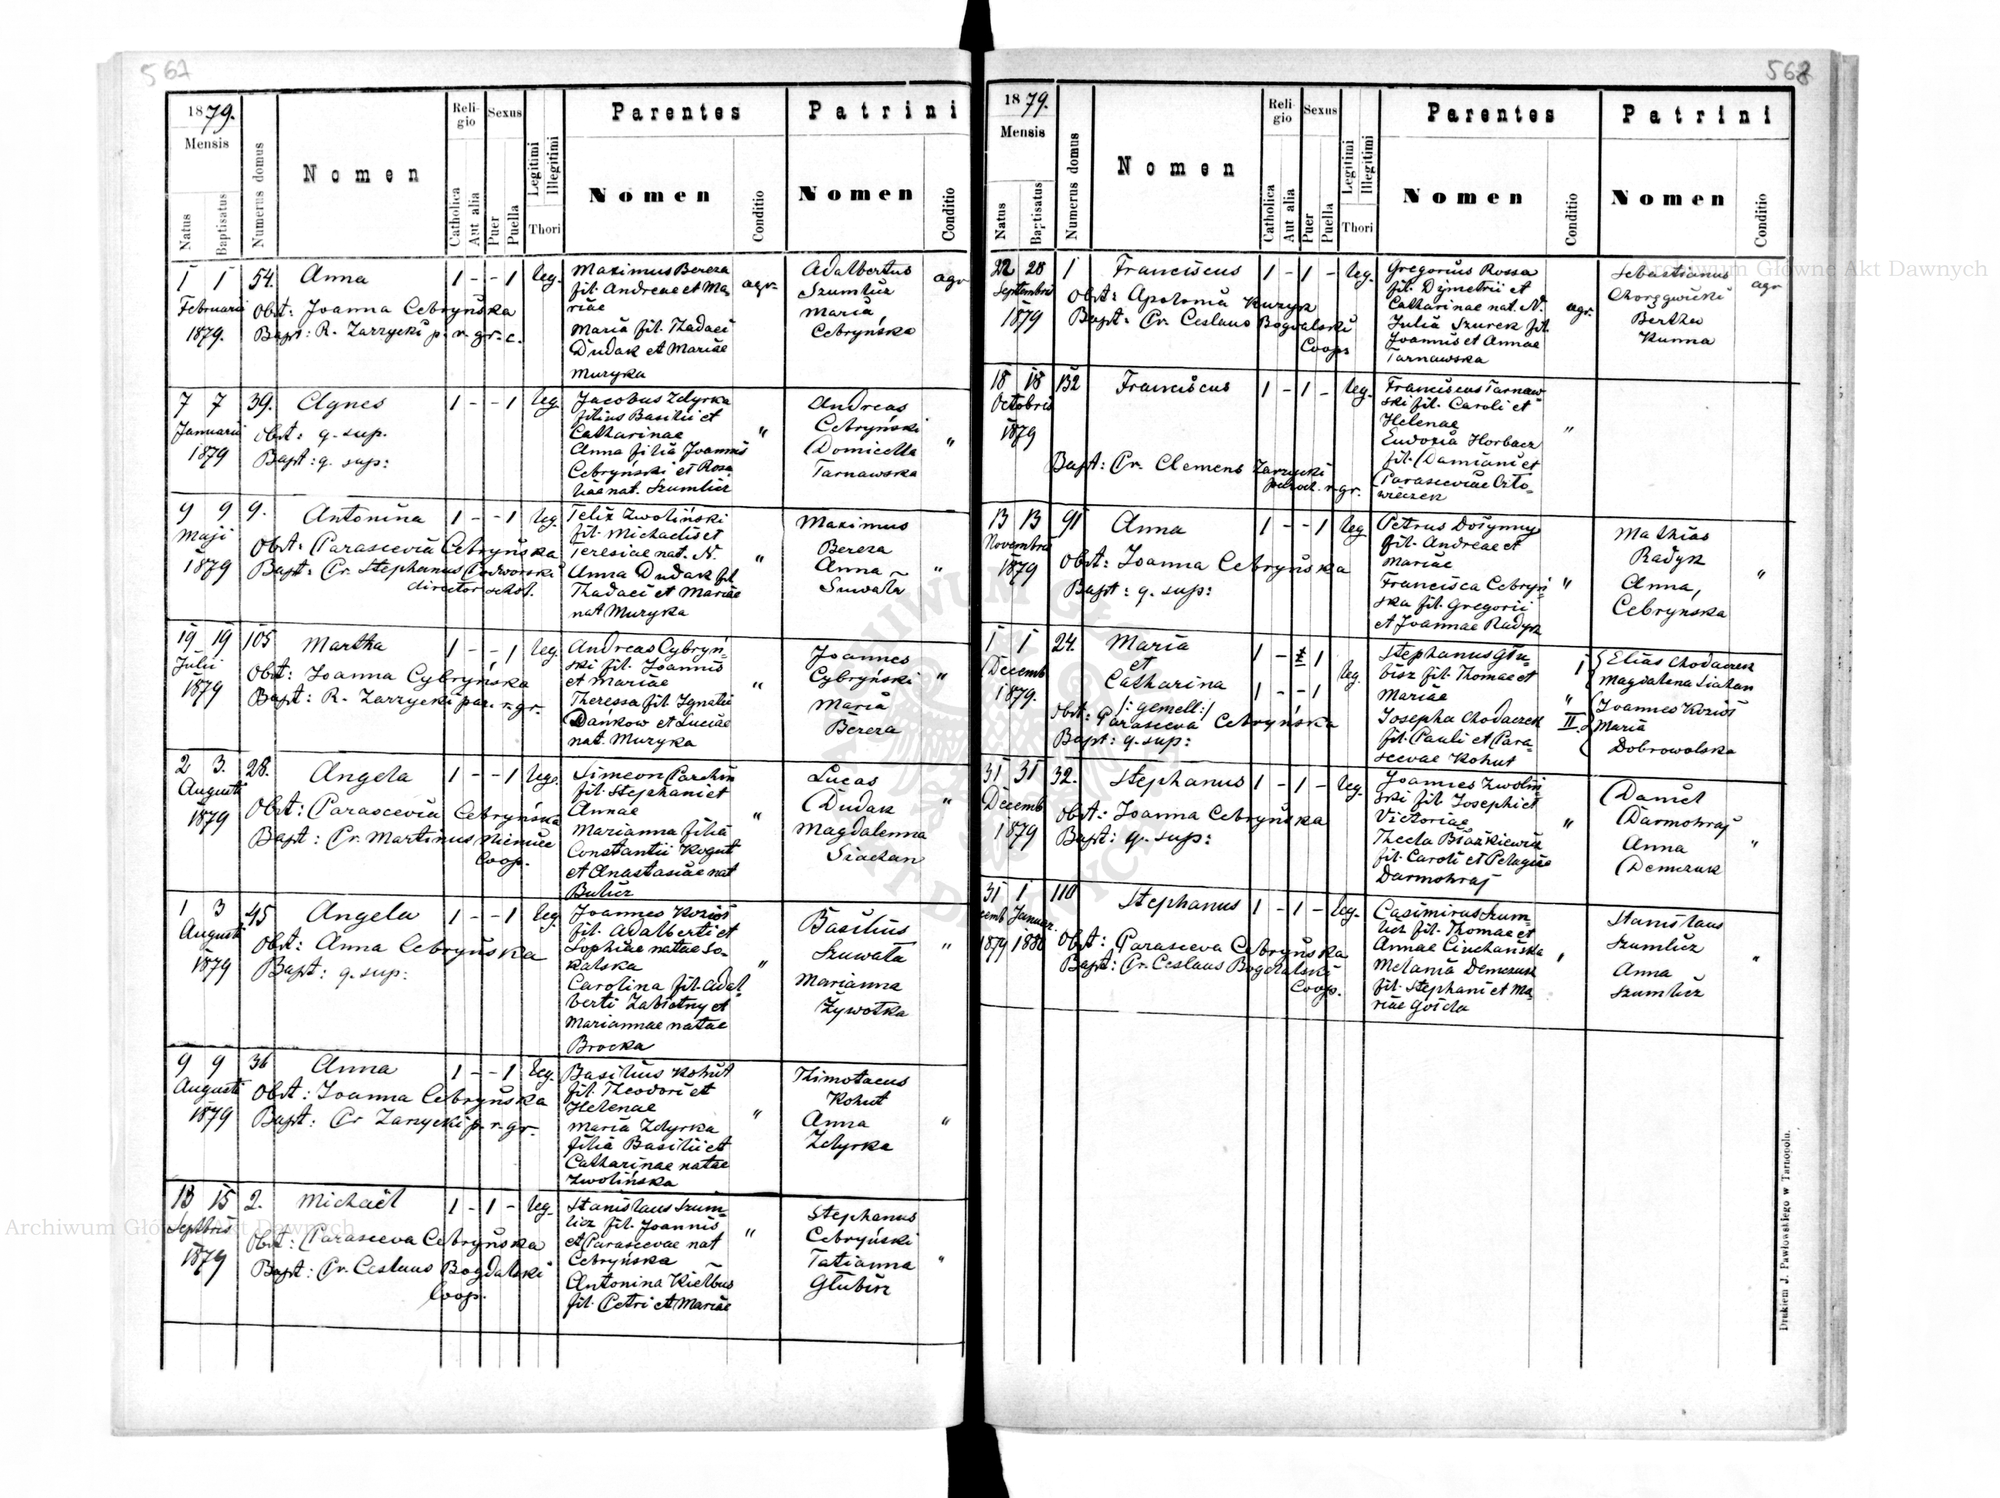 567
1879.
Mensis
Natus
Baptisatus
Numerus domus
Nomen
Religio
Catholica
Aut alia
Sexus
Puer
Puella
Legitimi
Illegitimi
Thori
Parentes
Nomen
Conditio
Patrini
Nomen
Conditio
1 1 54. Anna 1 - - 1 leg. Maximus Bereza agr. Adalbertus agr.
Februarii
1879.
Obst: Joanna Cebryńska
Bapt: R. Zarzycki p. r. gr. c.
fil. Andreae et Ma-
riae
Maria fil. Thadaei
Dudak et Mariae
Muryka
Szumlicz
Maria
Cebryńska
7 7 39. Agnes 1 - - 1 leg. Jacobus Zdyrka " Andreas "
Januarii
1879
Obst: q. sup.
Bapt: q. sup:
filius Basilii et
Catharinae
Anna filia Joannis
Cebrynski et Rosa
liae nat. Szumlicz
Cebryński
Domicella
Tarnawska
9 9 9. Antonina 1 - - 1 leg. Felix Zwoliński " Maximus "
Maji
1879
Obst: Parascevia Cebryńska
Bapt: Pr. Stephanus Podworski
director schol.
fil. Michaelis et
Teresiae nat. N.
Anna Dudak fil
Thadaei et Mariae
nat Muryka
Bereza
Anna
Suwała
19 19 105 Martha 1 - - 1 leg. Andreas Cybryń- " Joannes "
Julii
1879
Obst: Joanna Cybryńska
Bapt: R. Zarzycki par. r. gr.
ski fil. Joannis
et Mariae
Theressa fil. Ignatii
Dańkow et Luciae
nat. Muryka
Cybryński
Maria
Bereza
2 3. 28. Angela 1 - - 1 leg. Simeon Parchin " Lucas "
Augusti
1879
Obst: Parascevia Cebryńska
Bapt: Pr. Martinus Niemiec
Coop.
fil. Stephani et
Annae
Marianna filia
Constantii Kogut
et Anastasiae nat
Bulicz
Dudak
Magdalenna
Siachan
1 3 45 Angela 1 - - 1 leg. Joannes Kozioł " Basilius "
Augusti
1879
Obst: Anna Cebryńska
Bapt: q. sup:
fil. Adalberti et
Sophiae natae So-
kalska
Carolina fil. Adal
berti Zabiotny et
Mariannae natae
Brocka
Szuwała
Marianna
Żywotka
9 9 36 Anna 1 - - 1 leg. Basilius Kohut " Thimotaeus "
Augusti
1879
Obst: Joanna Cebryńska
Bapt: Pr Zarzycki p. r. gr.
fil. Theodori et
Helenae
Maria Zdyrka
filia Basilii et
Catharinae natae
Zwolińska
Kohut
Anna
Zdyrka
13 15 2. Michael 1 - 1 - leg. Stanislaus Szum- " Stephanus "
Septbris
1879
Obst: Parasceva Cebryńska
Bapt: Pr. Ceslaus Bogdalski
Coop.
licz fil. Joannis
et Parascevae nat
Cebryńska
Antonina Kiełbus
fil. Petri et Mariae
Cebryński
Tatianna
Głubisz
568
1879.
Mensis
Natus
Baptisatus
Numerus domus
Nomen
Religio
Catholica
Aut alia
Sexus
Puer
Puella
Legitimi
Illegitimi
Thori
Parentes
Nomen
Conditio
Patrini
Nomen
Conditio
22 28 1 Franciscus 1 - 1 - leg. Gregorius Rossa agr. Sebastianus agr
Septembris
1879
Obst: Apolonia Kuzyk
Bapt: Pr. Ceslaus Bogdalski
Coop
fil. Dymetrii et
Catharinae nat. N.
Julia Szurek fil.
Joannis et Annae
Tarnawska
Bertha
Kunna
18 18 132 Franciscus 1 - 1 - leg. Franciscus Tarnaw- "
Octobris
1879
Bapt: Pr. Clemens Zarzycki
paroch. r. gr.
ski fil. Caroli et
Helenae
Eudoxia Horbacz
fil. Damiani et
Parasceviae Orto-
wiczek
13 13 91 Anna 1 - - 1 leg Petrus Dosymny " Mathias "
Novembris
1879
Obst: Joanna Cebryńska
Bapt: q. sup:
fil. Andreae et
Mariae
Francisca Cebryń-
ska fil. Gregorii
et Joannae Radyk
Radyk
Anna,
Cebrynska
1 1 24. Maria 1 - 1 leg. Stephanus Głu- I Elias Chodaczek
Decemb
1879.
et
Catharina 1 - - 1
/: gemell:/
Obst: Parasceva Cebryńska
Bapt: q. sup:
bisz fil. Thomae et
Mariae "
Josepha Chodaczek II.
fil. Pauli et Para-
scevae Kohut
Magdalena Siahan
Joannes Kozioł
Maria
Dobrowolska
31 31 32. Stephanus 1 - 1 - leg. Joannes Zwolin " Daniel "
Decemb
1879
Obst: Joanna Cebryńska
Bapt: q. sup:
ski fil Josephi et
Victoriae
Thecla Błażkiewicz
fil. Caroli et Pelagiae
Darmohraj
Darmohraj
Anna
Demczuk
31 1 110 Stephanus 1 - 1 - leg. Casimirus Szum- " Stanislaus "
cemb Januar.
1879 1880
Obst: Parasceva Cebryńska
Bapt: Pr. Ceslaus Bogdalski
Coop.
licz fil. Thomae et
Annae Ciuchańska
Melania Demczuk
fil. Stephani et Ma-
riae Goścla
Szumlicz
Anna
Szumlicz
Drukiem J. Pawłowskiego w Tarnopolu.
Archiwum Główne Akt Dawnych
Archiwum Główne Akt Dawnych
ARCHIWUM GŁÓWNE AKT DAWNYCH